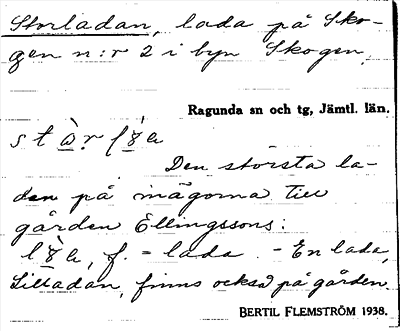 Storladan, lada på Sko-
gen n:r 2 i byn Skogen.
Ragunda sn och tg, Jämtl. län.
Den största la-
dan på mägorna till
gården Ellingssons:
f. = lada. - En lada,
Lilladan, finns också på gården.
BERTIL FLEMSTRÖM 1938.